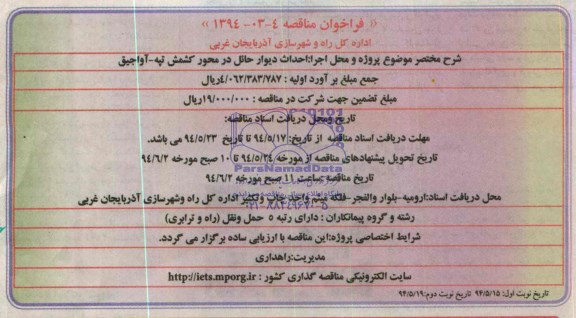 « فراخوان مناقصه ٤-٠٣- ١٣٩٤ »
اداره کل راه و شهرسازی آذربایجان غربی
شرح مختصر موضوع پروژه و محل اجرا:احداث دیوار حائل در محور کشمش تپه-آواجیق
جمع مبلغ بر آورد اولیه : ٤/٠٦٢/٣٨٣/٧٨٧ریال
مبلغ تضمین جهت شرکت در مناقصه : ١٩/٠٠٠/٠٠٠ریال
تاریخ ومحل دریافت اسناد مناقصه:
مهلت دریافت اسناد مناقصه از تاریخ: ٩٤/٥/١٧ تا تاریخ ٩٤/٥/٢٣ می باشد.
تاریخ تحویل پیشنهادهای مناقصه از مورخه ٩٤/٥/٢٤ تا ١٠ صبح مورخه ٩٤/٦/٢
تاریخ مناقصه ساعت ١١ صبح مورخه ٩٤/٦/٢
محل دریافت اسناد:ارومیه-بلوار والفجر-فلکه میثم واحد چاپ وتکثیر اداره کل راه وشهرسازی آذربایجان غربی
رشته و گروه پیمانکاران : دارای رتبه ٥ حمل ونقل (راه و ترابری)
شرایط اختصاصی پروژه:این مناقصه با ارزیابی ساده برگزار می گردد.
مدیریت:راهداری
سایت الکترونیکی مناقصه گذاری کشور : http://iets.mporg.ir
تاریخ نوبت اول: ٩٤/٥/١٥ تاریخ نوبت دوم:٩٤/٥/١٩
ParsNamadData